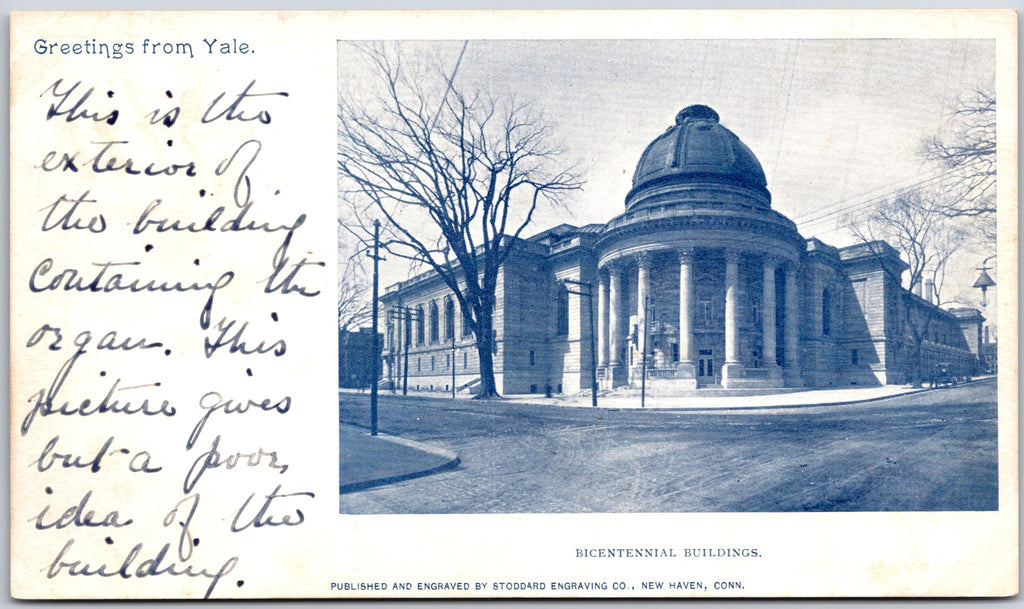 Greetings from Yale.
This is the
exterior of
the building
containing the
organ. This
picture gives
but a poor
idea of the
building.
BICENTENNIAL BUILDINGS.
PUBLISHED AND ENGRAVED BY STODDARD ENGRAVING CO., NEW HAVEN, CONN.